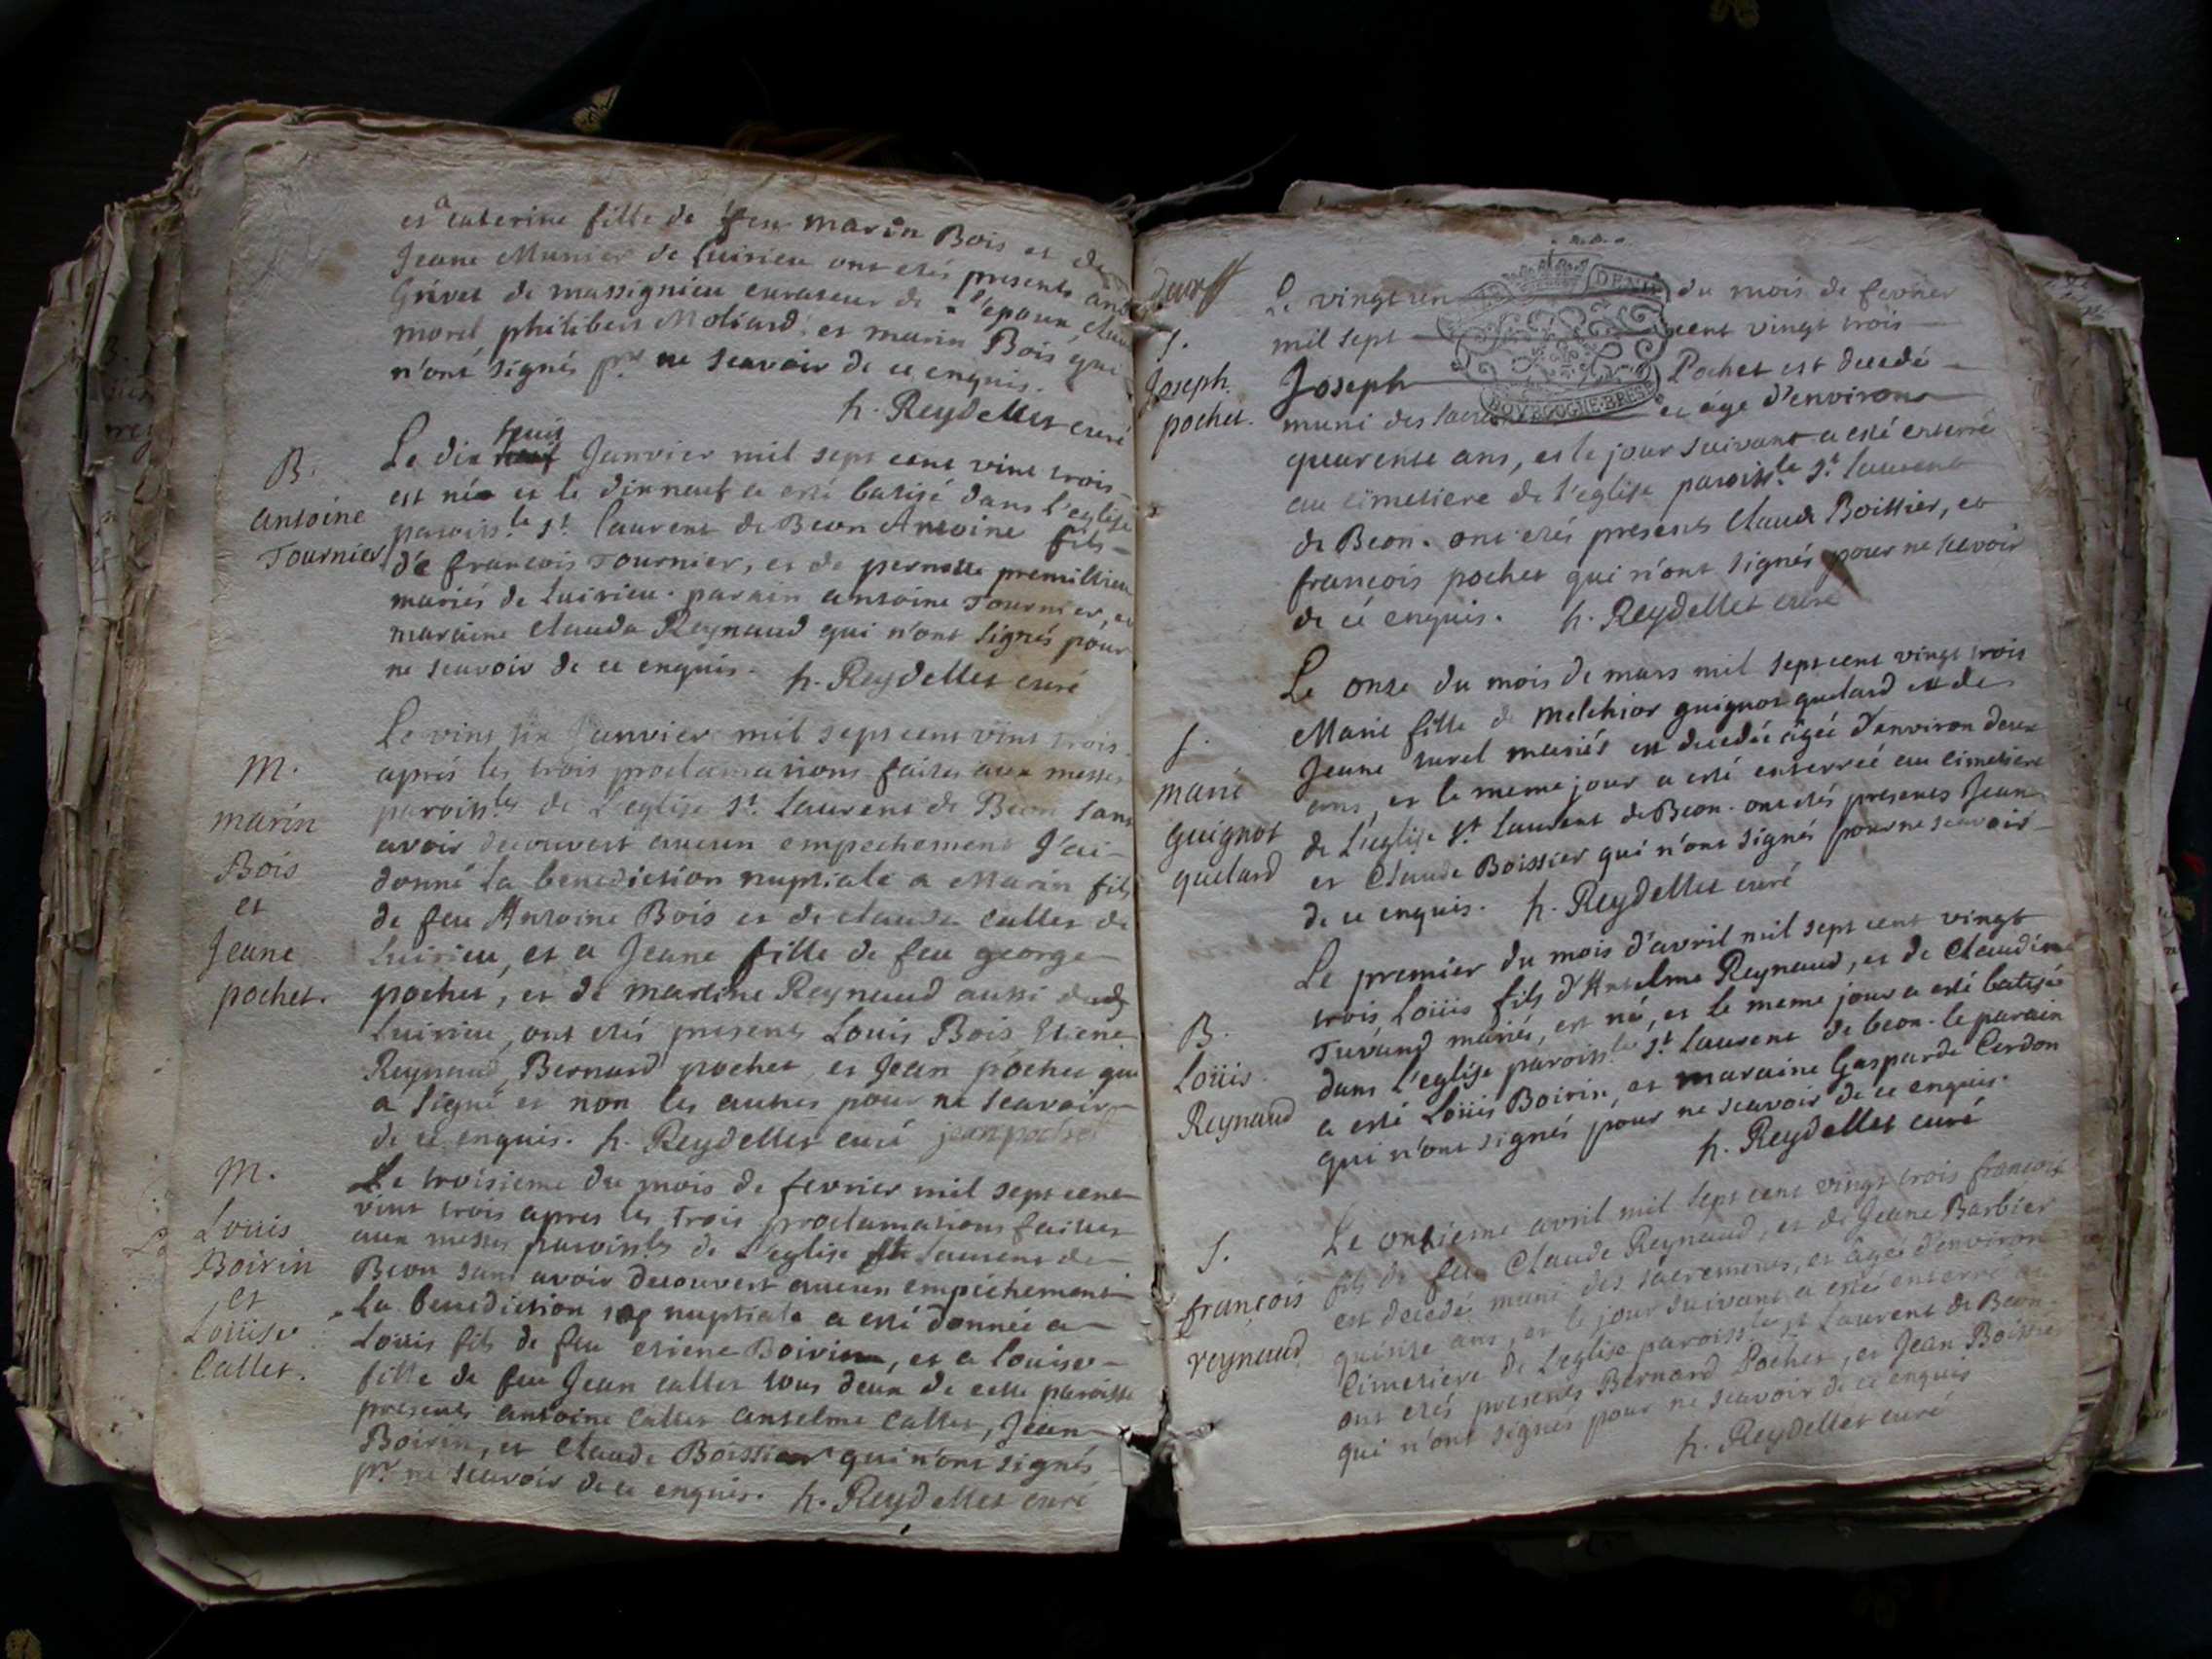 et caterine fille de feu marin Bois et de
Jeane Munier de Luirieu ont etés presents
Grivet de massignieu curateur de l'epoux
morel, philibert Moliard et marin Bois qui
n'ont signés pr ne scavoir de ce enquis.
h. Reydellet curé
B.
antoine
Tournier
Le dix huit Janvier mil sept cent vint trois
est né et le dixneuf a esté batisé dans l'eglise
paroiss.le st laurent de Beon Antoine fils
de francois Tournier, et de pernette premillieu
mariés de Luirieu. parain antoine Tournier, et
maraine Clauda Reynaud qui n'ont signés pour
ne scavoir de ce enquis. h. Reydellet curé
M.
marin
Bois
et
Jeane
pochet.
Le vint six Janvier mil sept cent vint trois
aprés les trois proclamations faites aux messes
paroiss.les de L'eglise st. laurent de Beon sans
avoir decouvert aucun empechement J'ai
donné la benediction nuptiale a Marin fils
de feu Antoine Bois et de claude callet de
Luirieu, et a Jeane fille de feu george
pochet, et de martine Reynaud aussi dud
Luirieu, ont etés presents Louis Bois Etiene
Reynaud, Bernard pochet, et Jean pochet qui
a signé et non les autres pour ne scavoir
de ce enquis. h. Reydellet curé jean pochet
M.
Louis
Boirin
et
Louise
Callet.
Le troisieme du mois de fevrier mil sept cent
vint trois apres les Trois proclamations faittes
aux messes paroiss.les de L'eglise st laurent de
Beon sans avoir decouvert aucun empechement
La benediction nuptiale a esté donnée a
Louis fils de feu etiene Boirin, et a louise
fille de feu Jean callet tous deux de cette paroisse
presents antoine Callet anselme Callet, Jean
Boirin, et Claude Boissier qui n'ont signés
pr ne scavoir de ce enquis. h. Reydellet curé
S.
Joseph
pochet.
Le vingt un du mois de fevrier
mil sept cent vingt trois
Joseph Pochet est decedé
muni des sacre et age d'environ
quarente ans, et le jour suivant a esté enterré
au cimetiere de l'eglise paroiss.le st laurent
de Beon. ont etés presents Claude Boissier, et
francois pochet qui n'ont signés pour ne scavoir
de ce enquis. h. Reydellet curé
DENIE
BOVRGOGNE·BRES
S.
marie
guignot
quelard
Le onze du mois de mars mil sept cent vingt trois
Marie fille de melchior guignot quelard et de
Jeane turel mariés est decedée âgée d'environ deux
ans, et le meme jour a esté enterrée au cimetiere
de L'eglise st laurent de Beon. ont etés presents Jean
et Claude Boissier qui n'ont signés pour ne scavoir
de ce enquis. h. Reydellet curé
B.
Loüis
Reynaud
Le premier du mois d'avril mil sept cent vingt
trois Loüis fils d'Anselme Reynaud, et de Claudine
Tuvand mariés, est né, et le meme jour a esté batisé
dans l'eglise paroiss.le st laurent de beon. le parain
a esté Loüis Boirin, et maraine Gasparde Cerdon
qui n'ont signés pour ne scavoir de ce enquis.
h. Reydellet curé
S.
françois
reynaud
Le onzieme avril mil sept cent vingt trois francois
fils de feu Claude Reynaud, et de Jeane Barbier
est decedé muni des sacrements, et âgé d'environ
quinze ans, et le jour suivant a esté enterré au
Cimetiere de L'eglise paroiss.le st Laurent de Beon.
ont etés presents Bernard Pochet, et Jean Boissier
qui n'ont signés pour ne scavoir de ce enquis
h. Reydellet curé